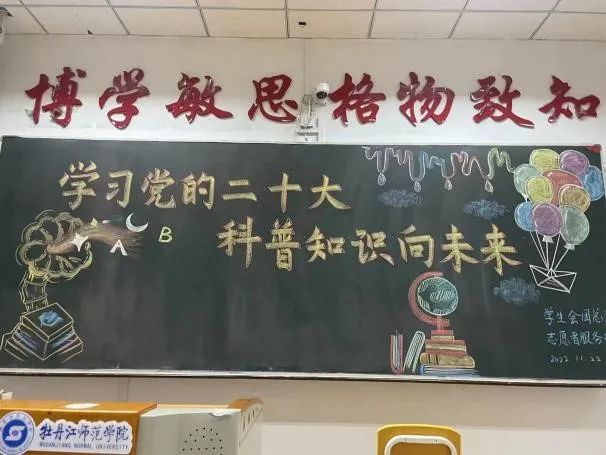 博学敏思 格物致知
学习党的二十大
A
B
科普知识向未来
学生会团总
志愿者服务
2022.11.22
牡丹江师范学院
MUDANJIANG NORMAL UNIVERSITY